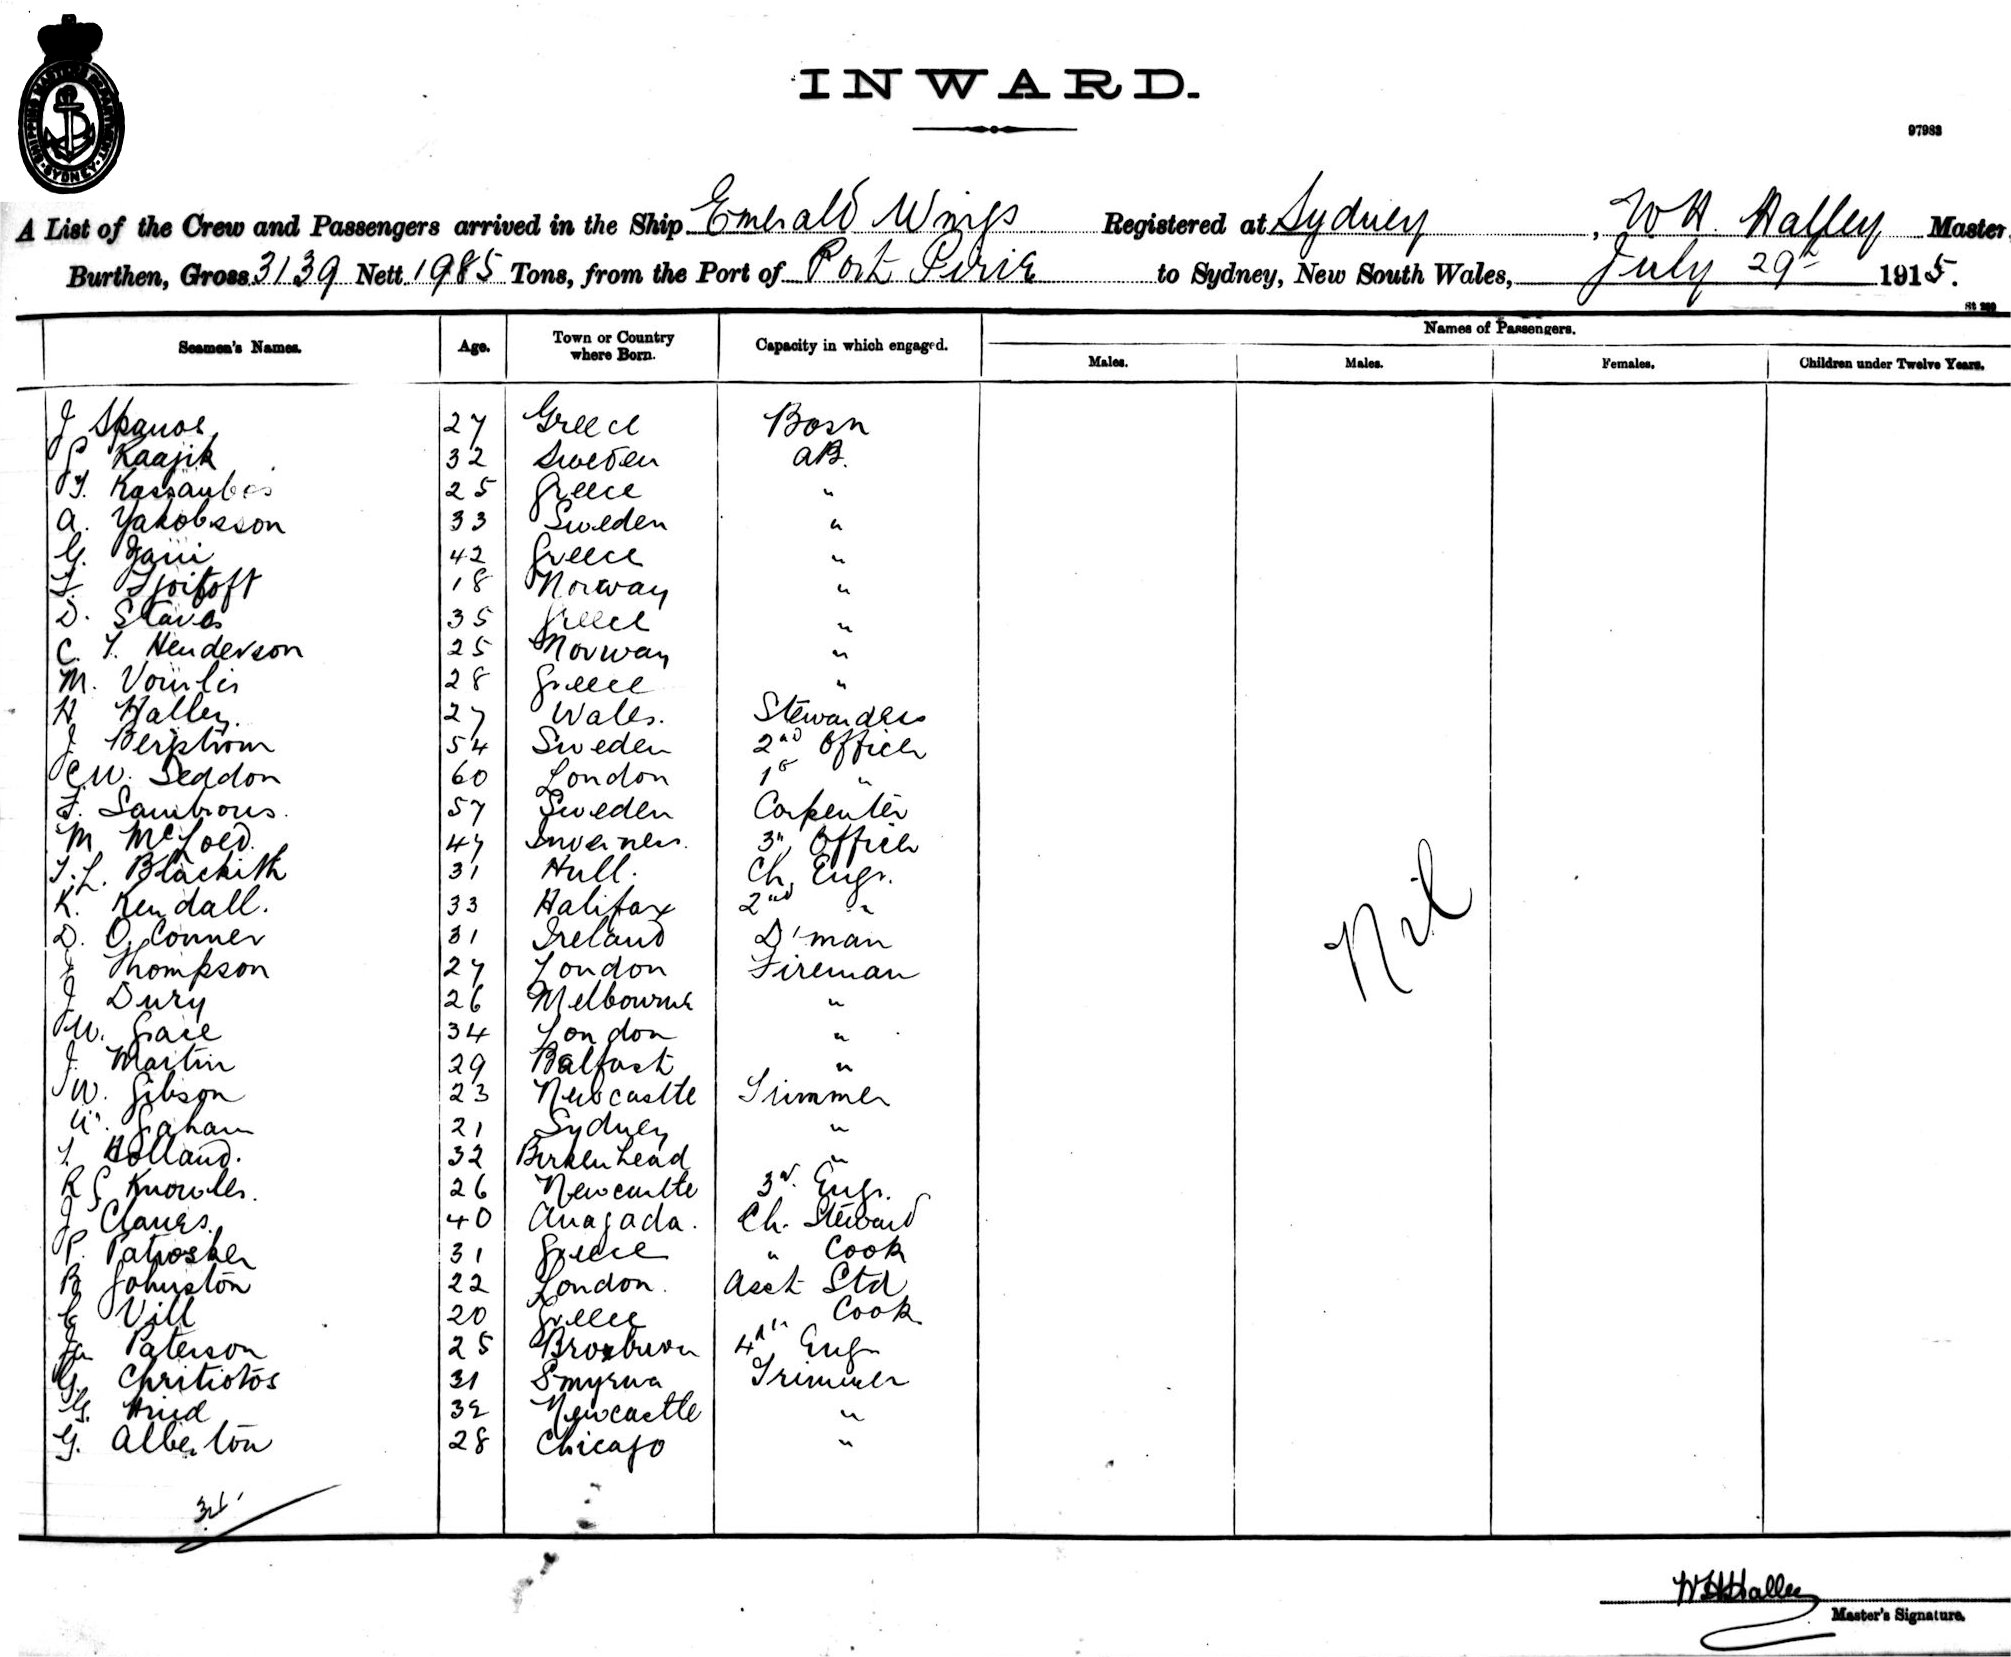 SHIPPING MASTER'S DEPARTMENT · SYDNEY ·
INWARD.
97983
A List of the Crew and Passengers arrived in the Ship Emerald Wings Registered at Sydney, W H. Halley Master
Burthen, Gross 3139 Nett 1985 Tons, from the Port of Port Pirie to Sydney, New South Wales, July 29th 1915.
Names of Passengers.
Seamen's Names. Age. Town or Country where Born. Capacity in which engaged. Males. Males. Females. Children under Twelve Years.
J Spanos 27 Greece Bosn
P Kaajik 32 Sweden AB.
25 Greece "
A. Yakobsson 33 Sweden "
G. Jani 42 Greece "
18 Norway "
D. Stavos 35 Greece "
C. T. Henderson 25 Norway "
M. 28 Greece "
H Halley. 27 Wales. Stewardess
J Bergstrom 54 Sweden 2nd Officer
C.W. Seddon 60 London 1st "
57 Sweden Carpenter
M McLoed. 47 Inverness. 3rd Officer
T.L. Blackith 31 Hull. Ch. Engr.
K. Kendall. 33 Halifax 2nd "
D. O'Conner 31 Ireland D'man
J Thompson 27 London Fireman
J Dury 26 Melbourne "
W. Grace 34 London "
J. Martin 29 Belfast "
W. Gibson 23 Newcastle Trimmer
Gaham 21 Sydney "
T. Holland. 32 Birkenhead "
R G Knowles. 26 Newcastle 3rd. Engr.
J Clanes. 40 Anagada. Ch. Steward
P. 31 Greece " Cook
B Johnston 22 London. Asst Std
C Vill 20 Greece " Cook
Jn Paterson 25 Broxburn 4th Engr
G. Chritiotos 31 Smyrna Trimmer
G. 32 Newcastle "
G. Alberton 28 Chicago "
Nil
W H Halley
Master's Signature.